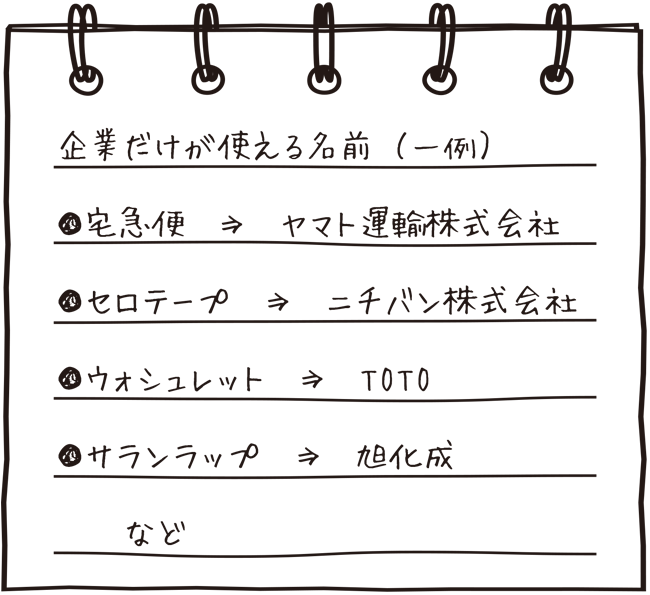 企業だけが使える名前（一例）
●宅急便 ⇒ ヤマト運輸株式会社
●セロテープ ⇒ ニチバン株式会社
●ウォシュレット ⇒ TOTO
●サランラップ ⇒ 旭化成
など